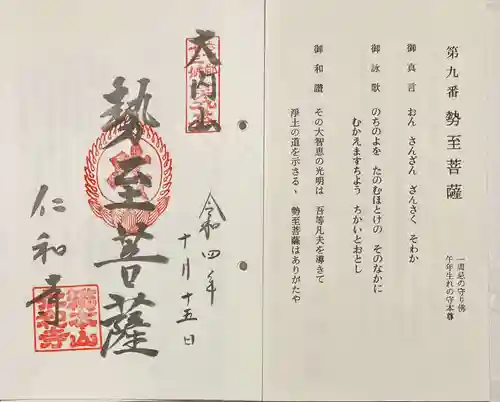 第九番 勢至菩薩
一周忌の守り佛
午年生れの守本尊
御真言 おん さんざん ざんさく そわか
御詠歌 のちのよを たのむほとけの そのなかに
むかえますちよう ちかいとおとし
御和讃 その大智恵の光明は 吾等凡夫を導きて
浄土の道を示さる、 勢至菩薩はありがたや
大内山
令和四年
十月十五日
勢至菩薩
仁和寺
総本山
仁和寺